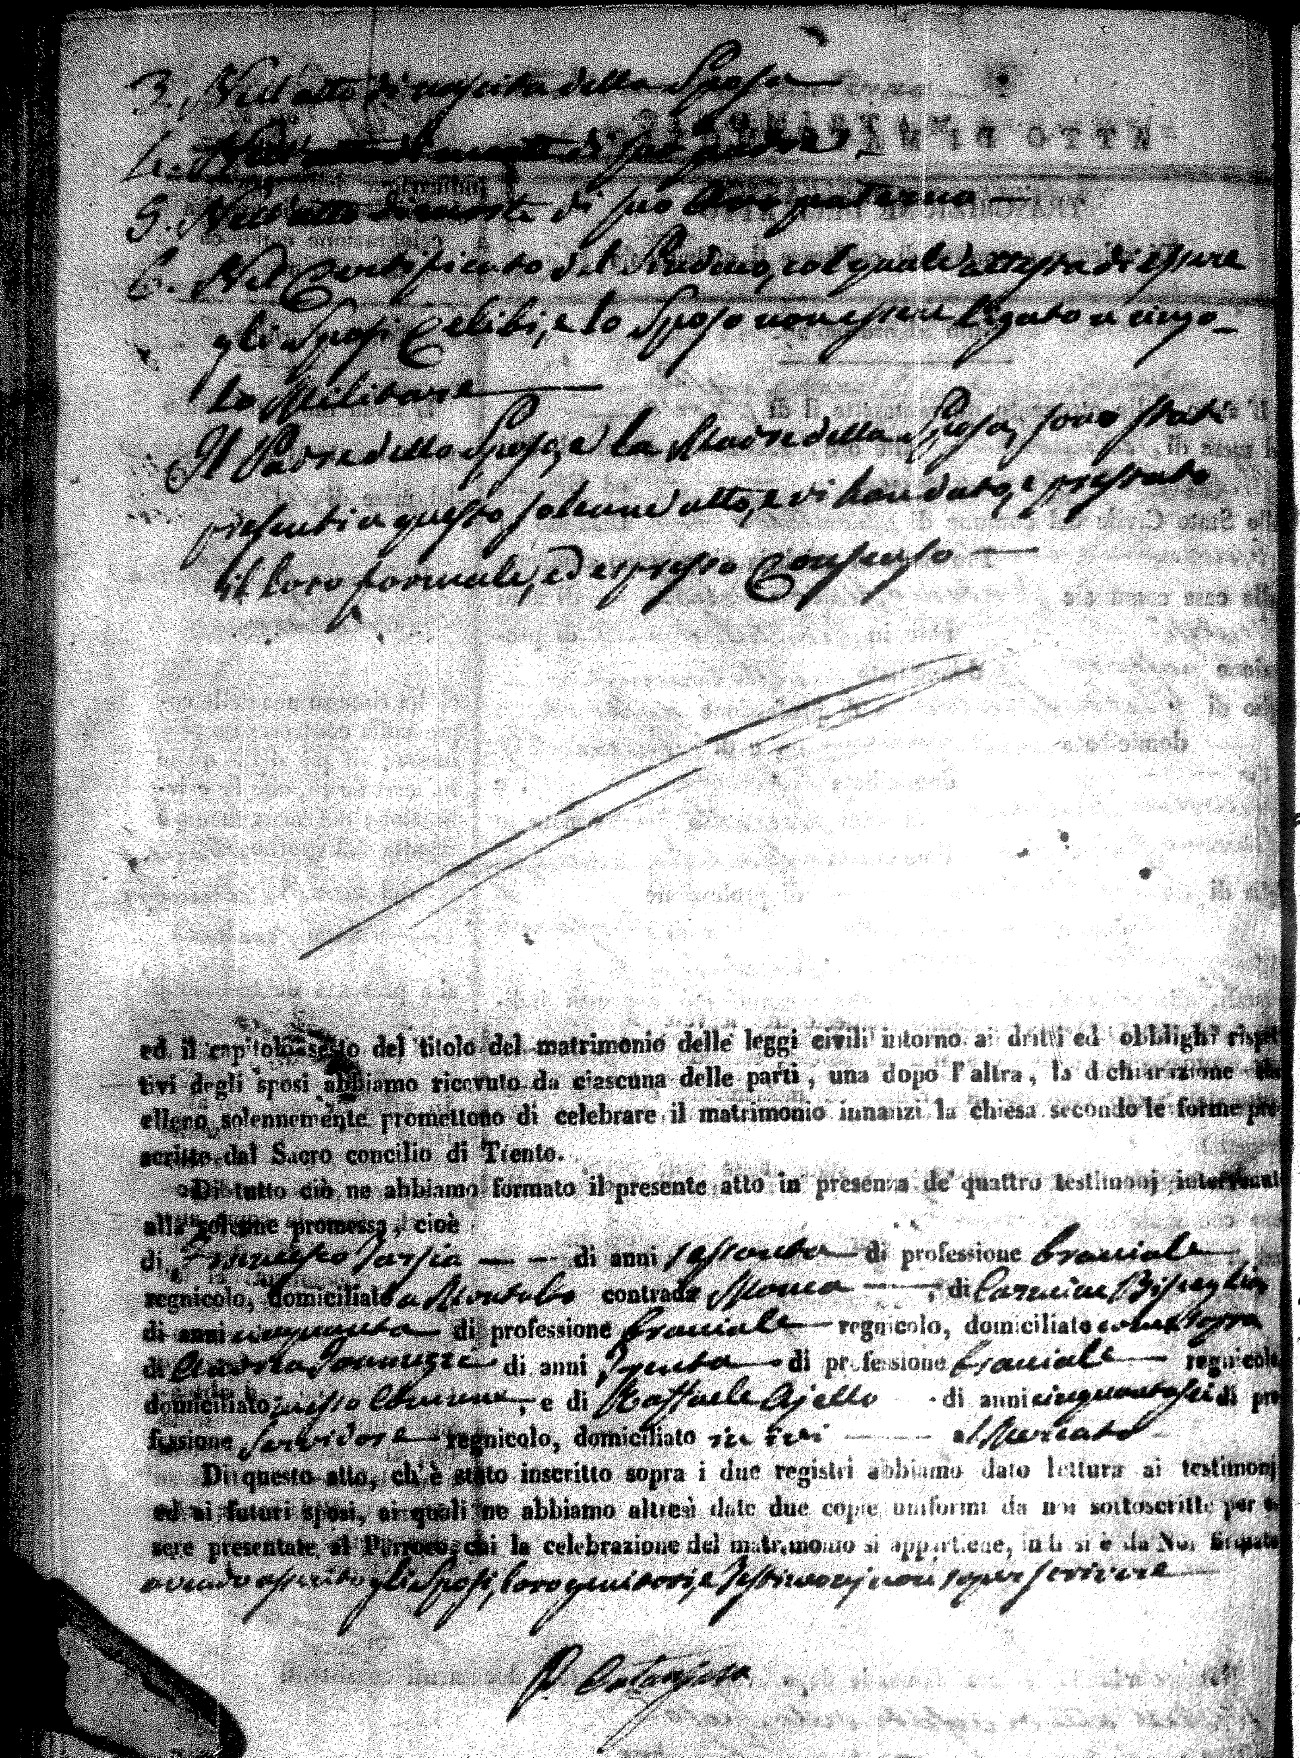 3. Nell'atto di nascita della Sposa
4. Nell'atto di morte di suo padre
5. Nell'atto di morte di suo Avo paterno
6. Nel Certificato del Sindaco, col quale attesta di essere
gli Sposi Celibi, e lo Sposo non essere ligato a vinco_
lo Militare
Il Padre dello Sposo, e la Madre della Sposa, sono stati
presenti a questo solenne atto, e vi han dato, e prestato
il loro formale, ed espresso Consenso
ed il capitolo sesto del titolo del matrimonio delle leggi civili intorno ai dritti ed obblighi rispet
tivi degli sposi abbiamo ricevuto da ciascuna delle parti, una dopo l'altra, la dichiarazione che
elleno solennemente promettono di celebrare il matrimonio innanzi la chiesa secondo le forme pre
scritte dal Sacro concilio di Trento.
Di tutto ciò ne abbiamo formato il presente atto in presenza de' quattro testimonj intervenuti
alla solenne promessa, cioè
di Francesco Tarsia di anni sessanta di professione braciale
regnicolo, domiciliato a Montalto contrada, di Carmine
di anni cinquanta di professione braciale regnicolo, domiciliato come sopra
di Andrea di anni trenta di professione braciale regnicolo
domiciliato, e di Raffaele Ajello di anni cinquantasei di pro
fessione servidore regnicolo, domiciliato in ivi al Mercato
Di questo atto, ch'è stato inscritto sopra i due registri abbiamo dato lettura ai testimonj
ed ai futuri sposi, ai quali ne abbiamo altresì date due copie uniformi da noi sottoscritte per es
sere presentate al Parroco, chi la celebrazione del matrimonio si appartiene, indi si è da Noi firmato
avendo asserito gli Sposi, loro genitori, e Testimonj non saper scrivere